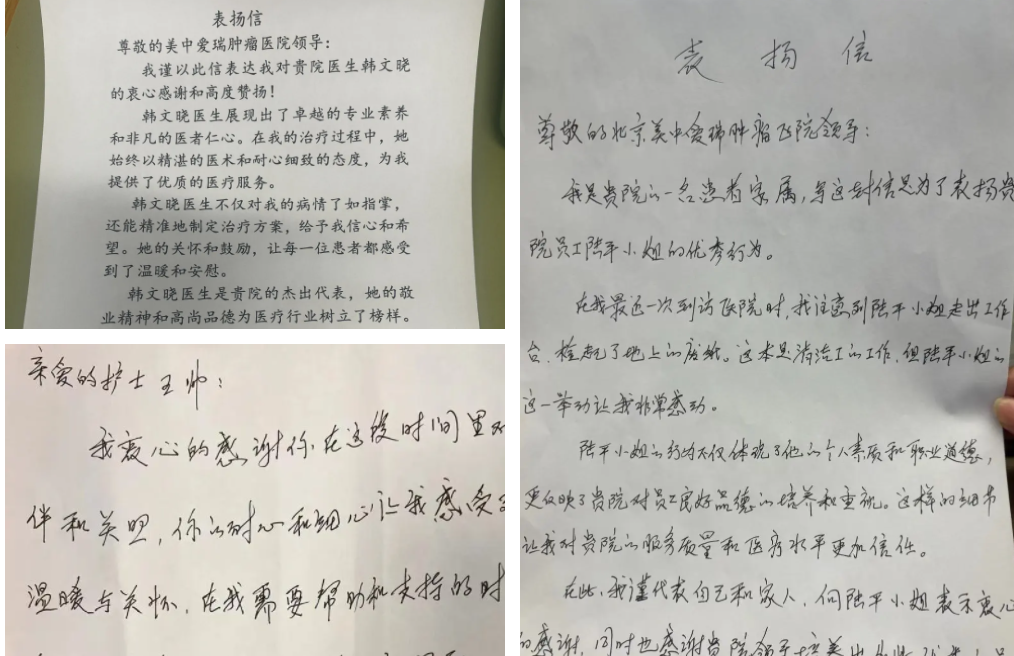 表扬信
尊敬的美中爱瑞肿瘤医院领导：
我谨以此信表达我对贵院医生韩文晓
的衷心感谢和高度赞扬！
韩文晓医生展现出了卓越的专业素养
和非凡的医者仁心。在我的治疗过程中，她
始终以精湛的医术和耐心细致的态度，为我
提供了优质的医疗服务。
韩文晓医生不仅对我的病情了如指掌，
还能精准地制定治疗方案，给予我信心和希
望。她的关怀和鼓励，让每一位患者都感受
到了温暖和安慰。
韩文晓医生是贵院的杰出代表，她的敬
业精神和高尚品德为医疗行业树立了榜样。
亲爱的护士王帅：
我衷心的感谢你在这段时间里对
伴和关照，你的耐心和细心让我感受了
温暖与关怀，在我需要帮助和支持的时
表扬信
尊敬的北京美中爱瑞肿瘤医院领导：
我是贵院的一名患者家属，写这封信是为了表扬贵
院员工陆平小姐的优秀行为。
在我最近一次到访医院时，我注意到陆平小姐走出工作
台，捡起了地上的废纸。这本是清洁工的工作，但陆平小姐的
这一举动让我非常感动。
陆平小姐的行为不仅体现了他的个人素质和职业道德，
更反映了贵院对员工良好品德的培养和重视。这样的细节
让我对贵院的服务质量和医疗水平更加信任。
在此，我谨代表自己和家人，向陆平小姐表示衷心
的感谢，同时也感谢贵院领导培养出